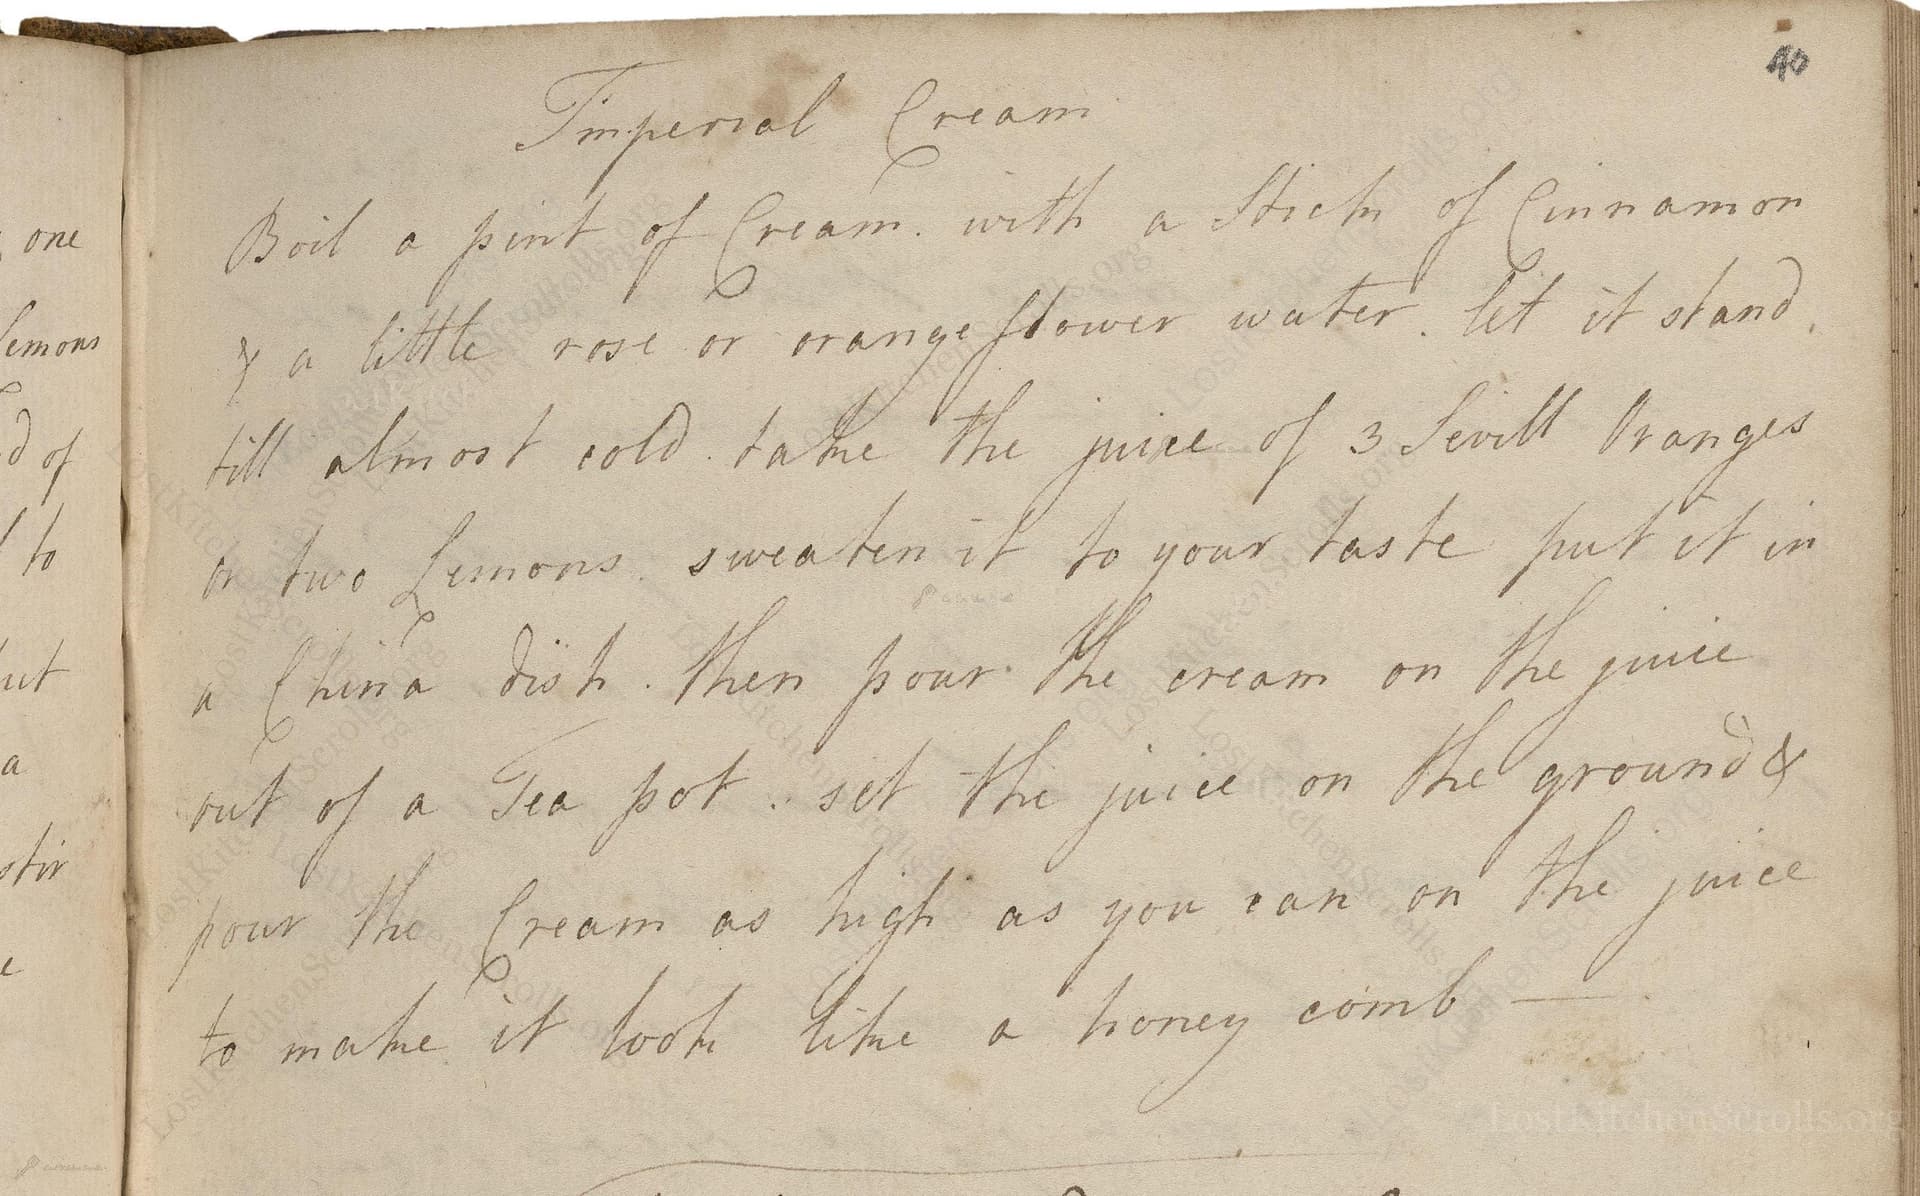 40
Imperial Cream
Boil a pint of Cream. with a Stick of Cinnamon
& a little rose or orange flower water. let it stand
till almost cold. take the juice of 3 Sevill Oranges
or two Lemons. sweaten it to your taste put it in
a China dish. then pour the cream on the juice
out of a Tea pot. set the juice on the ground &
pour the Cream as high as you can on the juice
to make it look like a honey comb —
one
Lemons
d of
to
a
stir
LostKitchenScrolls.org